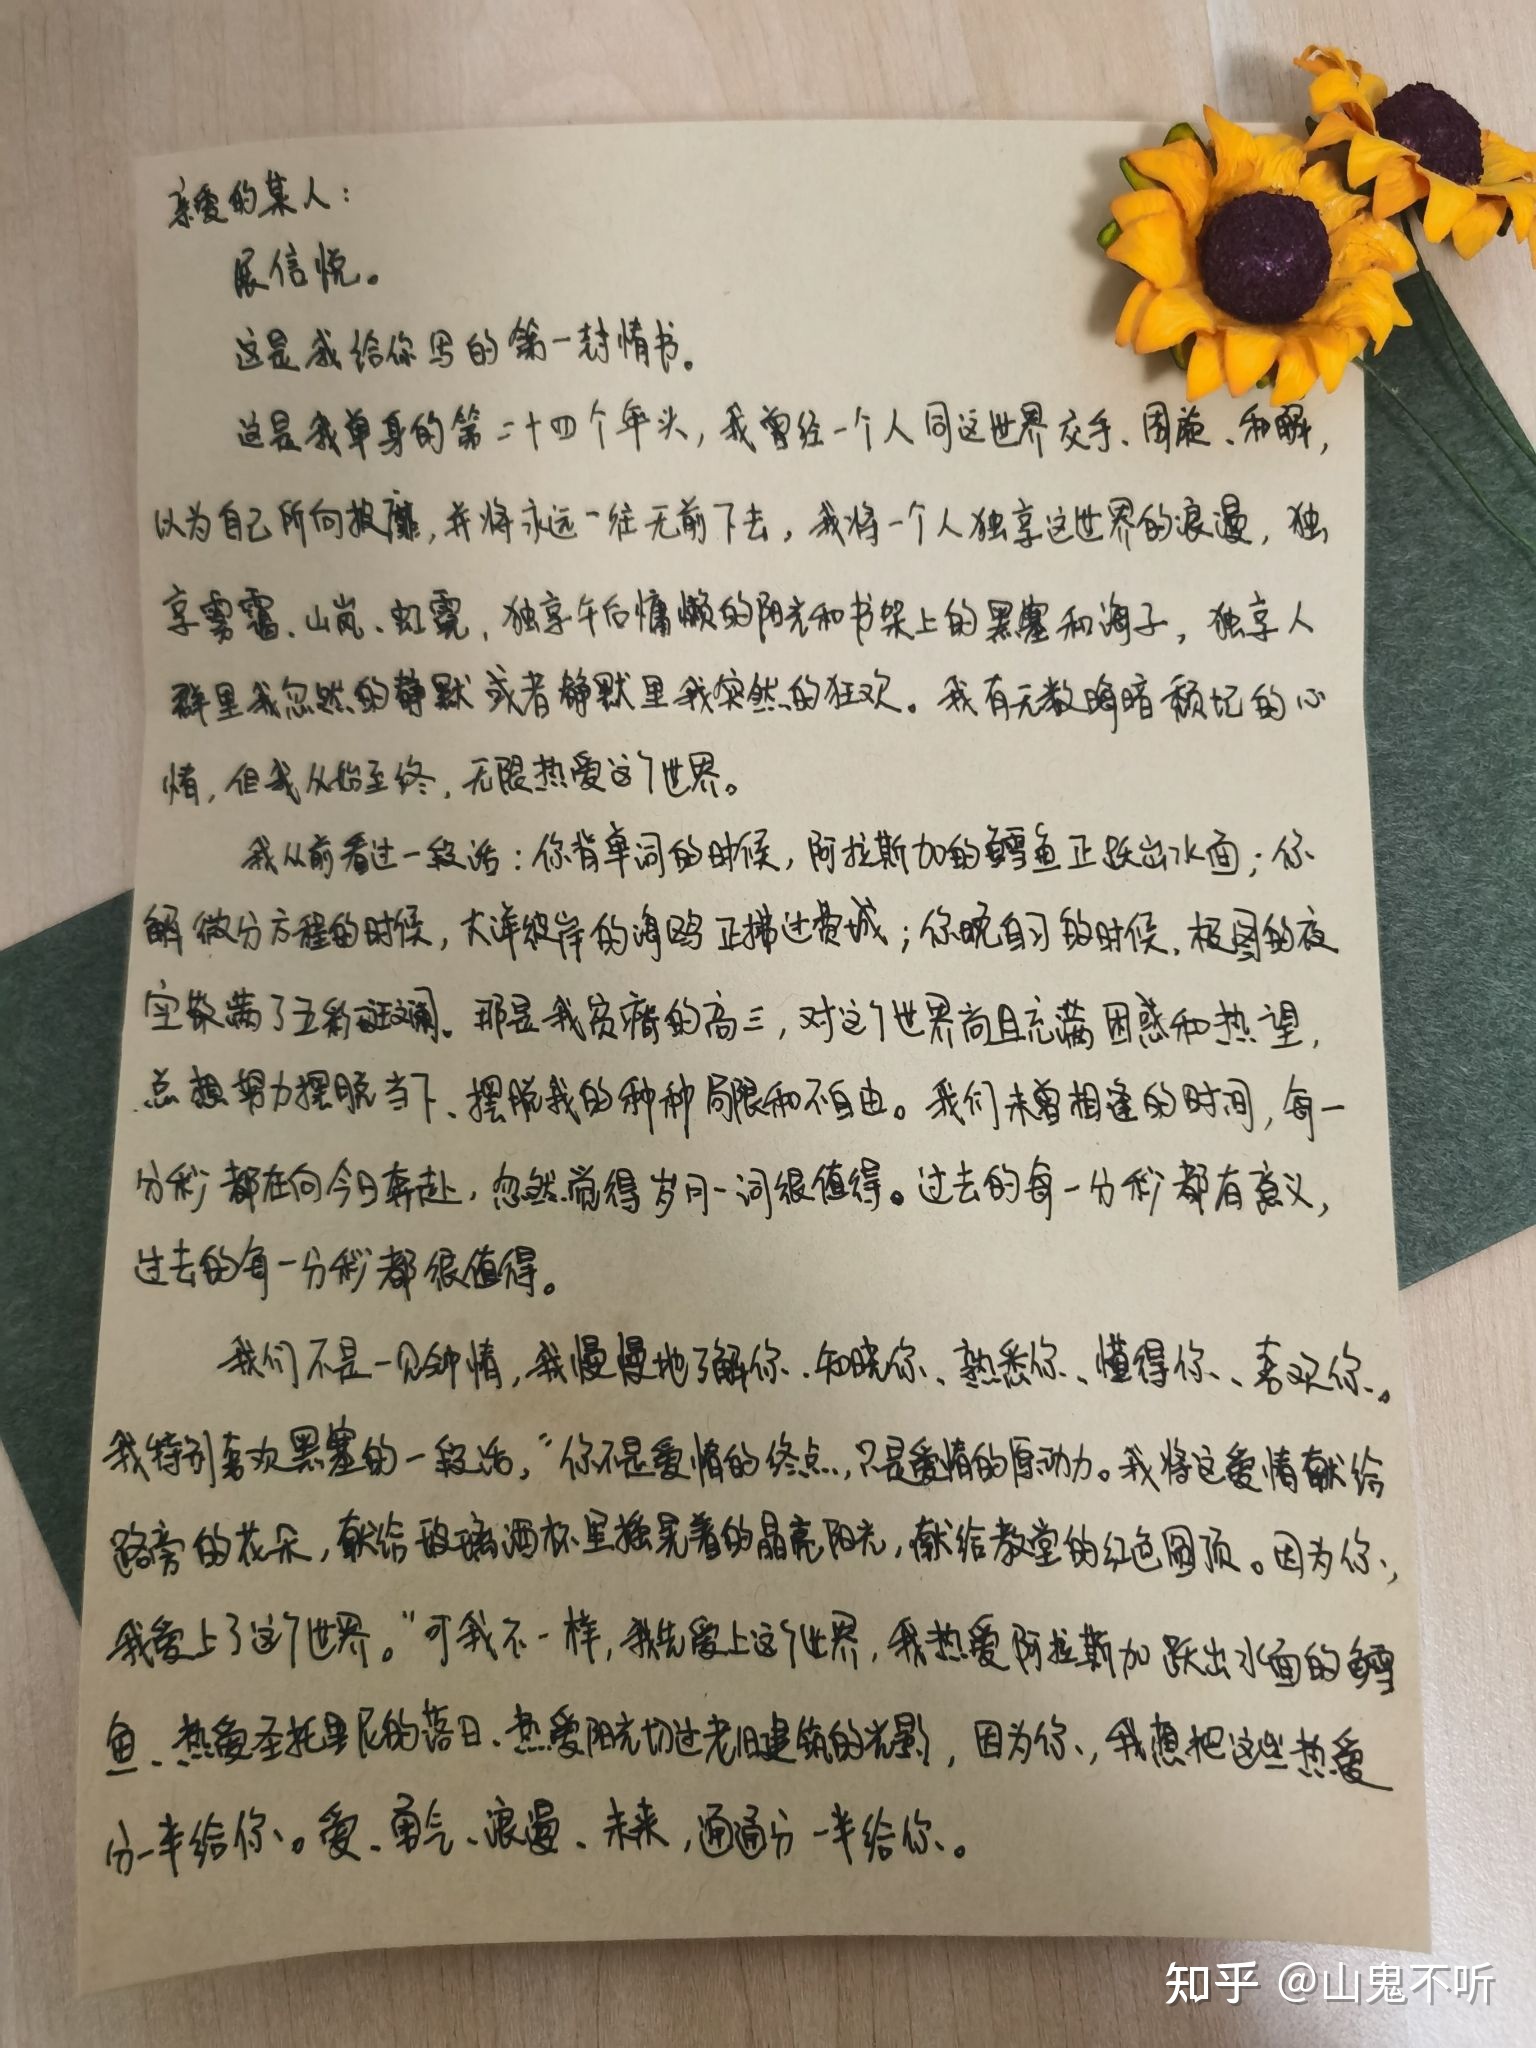 亲爱的某人：
展信悦。
这是我给你写的第一封情书。
这是我单身的第二十四个年头，我曾经一个人同这世界交手、周旋、和解，
以为自己所向披靡，并将永远一往无前下去，我将一个人独享这世界的浪漫，独
享雾霭、山岚、虹霓，独享午后慵懒的阳光和书架上的黑塞和海子，独享人
群里我忽然的静默或者静默里我突然的狂欢。我有无数晦暗颓圮的心
情，但我从始至终，无限热爱这个世界。
我从前看过一段话：你背单词的时候，阿拉斯加的鳕鱼正跃出水面；你
解微分方程的时候，大洋彼岸的海鸥正拂过费城；你晚自习的时候、极图的夜
空散满了五彩斑斓。那是我贫瘠的高三，对这个世界尚且充满困惑和热望，
总想努力摆脱当下、摆脱我的种种局限和不自由。我们未曾相逢的时间，每一
分秒都在向今日奔赴，忽然觉得岁月一词很值得。过去的每一分秒都有意义，
过去的每一分秒都很值得。
我们不是一见钟情，我慢慢地了解你、知晓你、熟悉你、懂得你、喜欢你。
我特别喜欢黑塞的一段话，“你不是爱情的终点，只是爱情的原动力。我将这爱情献给
路旁的花朵，献给玻璃酒杯里摇晃着的晶亮阳光，献给教堂的红色圆顶。因为你，
我爱上了这个世界。”可我不一样，我先爱上这个世界，我热爱阿拉斯加跃出水面的鳕
鱼、热爱圣托里尼的落日、热爱阳光切过老旧建筑的光影，因为你，我想把这些热爱
分一半给你。爱、勇气、浪漫、未来，通通分一半给你。
知乎 @山鬼不听